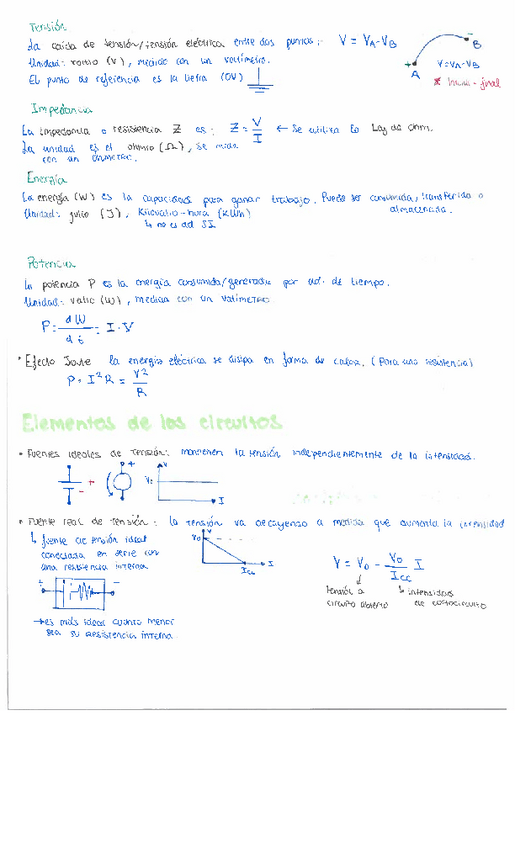 Tensión
La caída de tensión/tensión eléctrica entre dos puntos: V = VA-VB
Unidad: voltio (V), medido con un voltímetro.
El punto de referencia es la tierra (0V)
+ A - B
V=VA-VB
* inicial - final
Impedancia
La impedancia o resistencia Z es: Z = V/I ← Se utiliza la Ley de Ohm.
La unidad es el ohmio (Ω), se mide
con un óhmetro.
Energía
La energía (W) es la capacidad para ganar trabajo. Puede ser consumida, transferida o
almacenada.
Unidad: julio (J), Kilovatio-hora (kWh)
↳ no es del SI
Potencia
La potencia P es la energía consumida/generada por ud. de tiempo.
Unidad: vatio (W), medida con un vatímetro
P = dW/dt = I·V
* Efecto Joule la energía eléctrica se disipa en forma de calor. (Para una resistencia)
P = I²R = V²/R
Elementos de los circuitos
• Fuentes ideales de tensión: mantienen la tensión independientemente de la intensidad.
+ - + V I
• Fuente real de tensión: la tensión va decayendo a medida que aumenta la intensidad
↳ fuente de tensión ideal
conectada en serie con
una resistencia interna
V0 V Icc I
V = V0 - V0/Icc I
tensión a
circuito abierto
↳ intensidad
de cortocircuito
+ -
→ es más ideal cuanto menor
sea su resistencia interna.